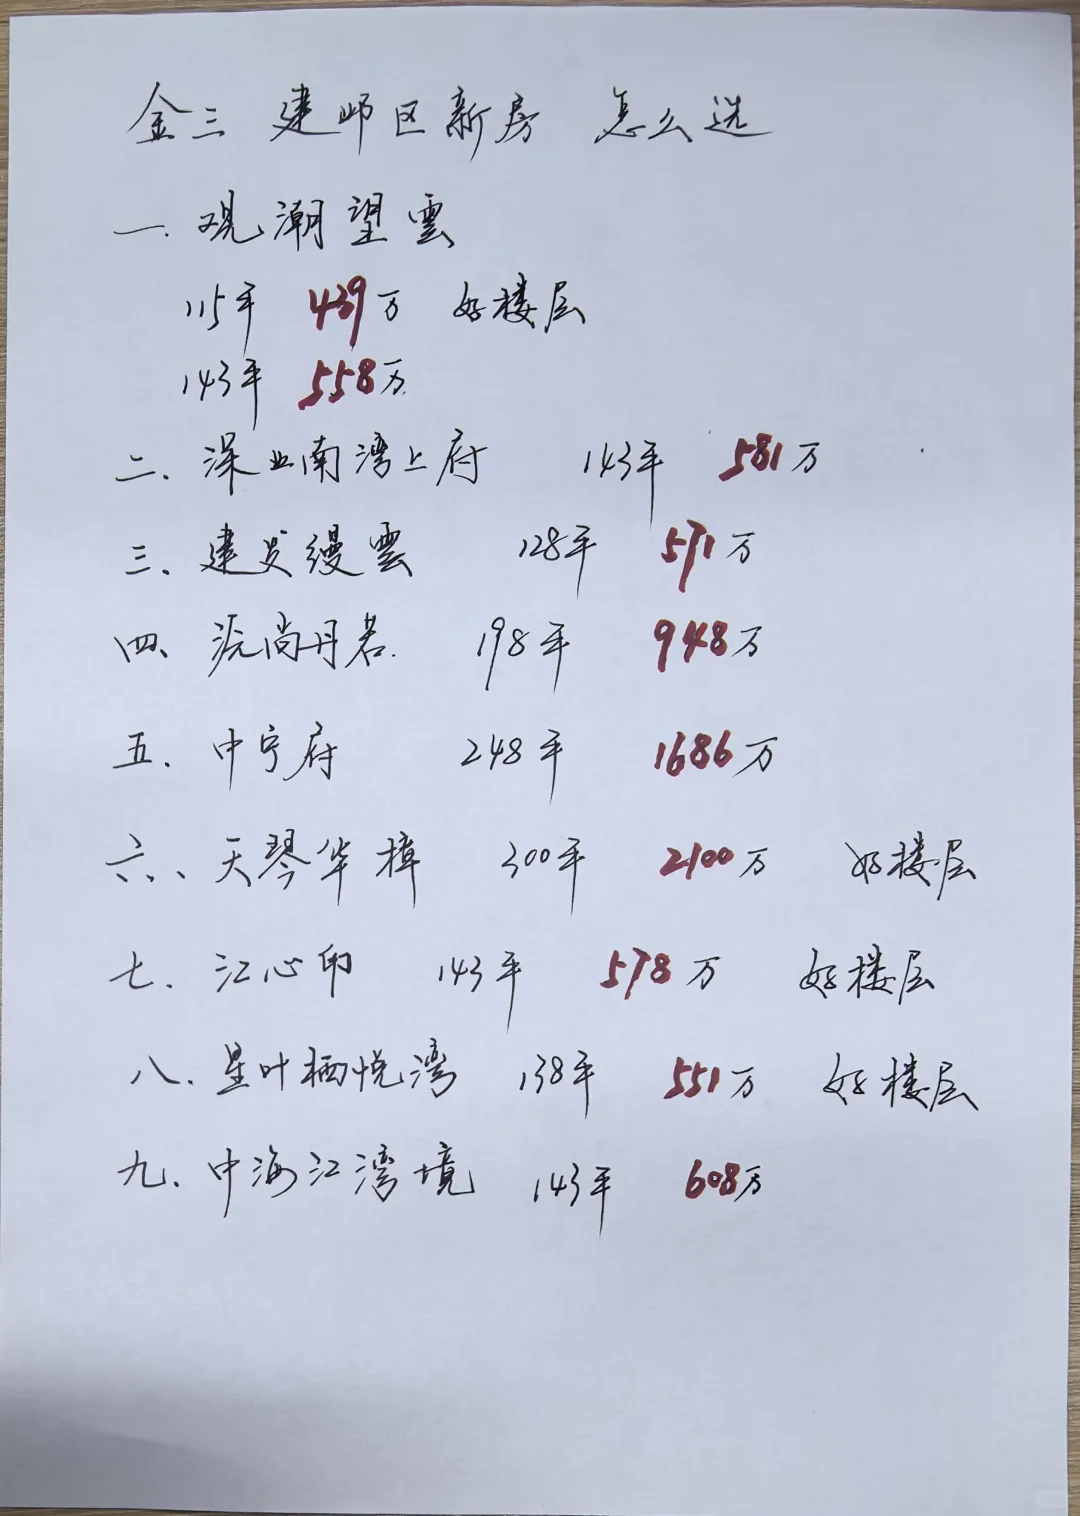 金三 建邺区新房 怎么选
一. 观潮望雲
115平 439万 好楼层
143平 558万
二、深业南湾上府 143平 581万
三、建发缦雲 128平 571万
四、浣尚丹若. 198平 948万
五、中宁府 248平 1686万
六、天琴华樟 300平 2100万 好楼层
七、江心印 143平 578万 好楼层
八、星叶栖悦湾 138平 551万 好楼层
九、中海江湾境 143平 608万